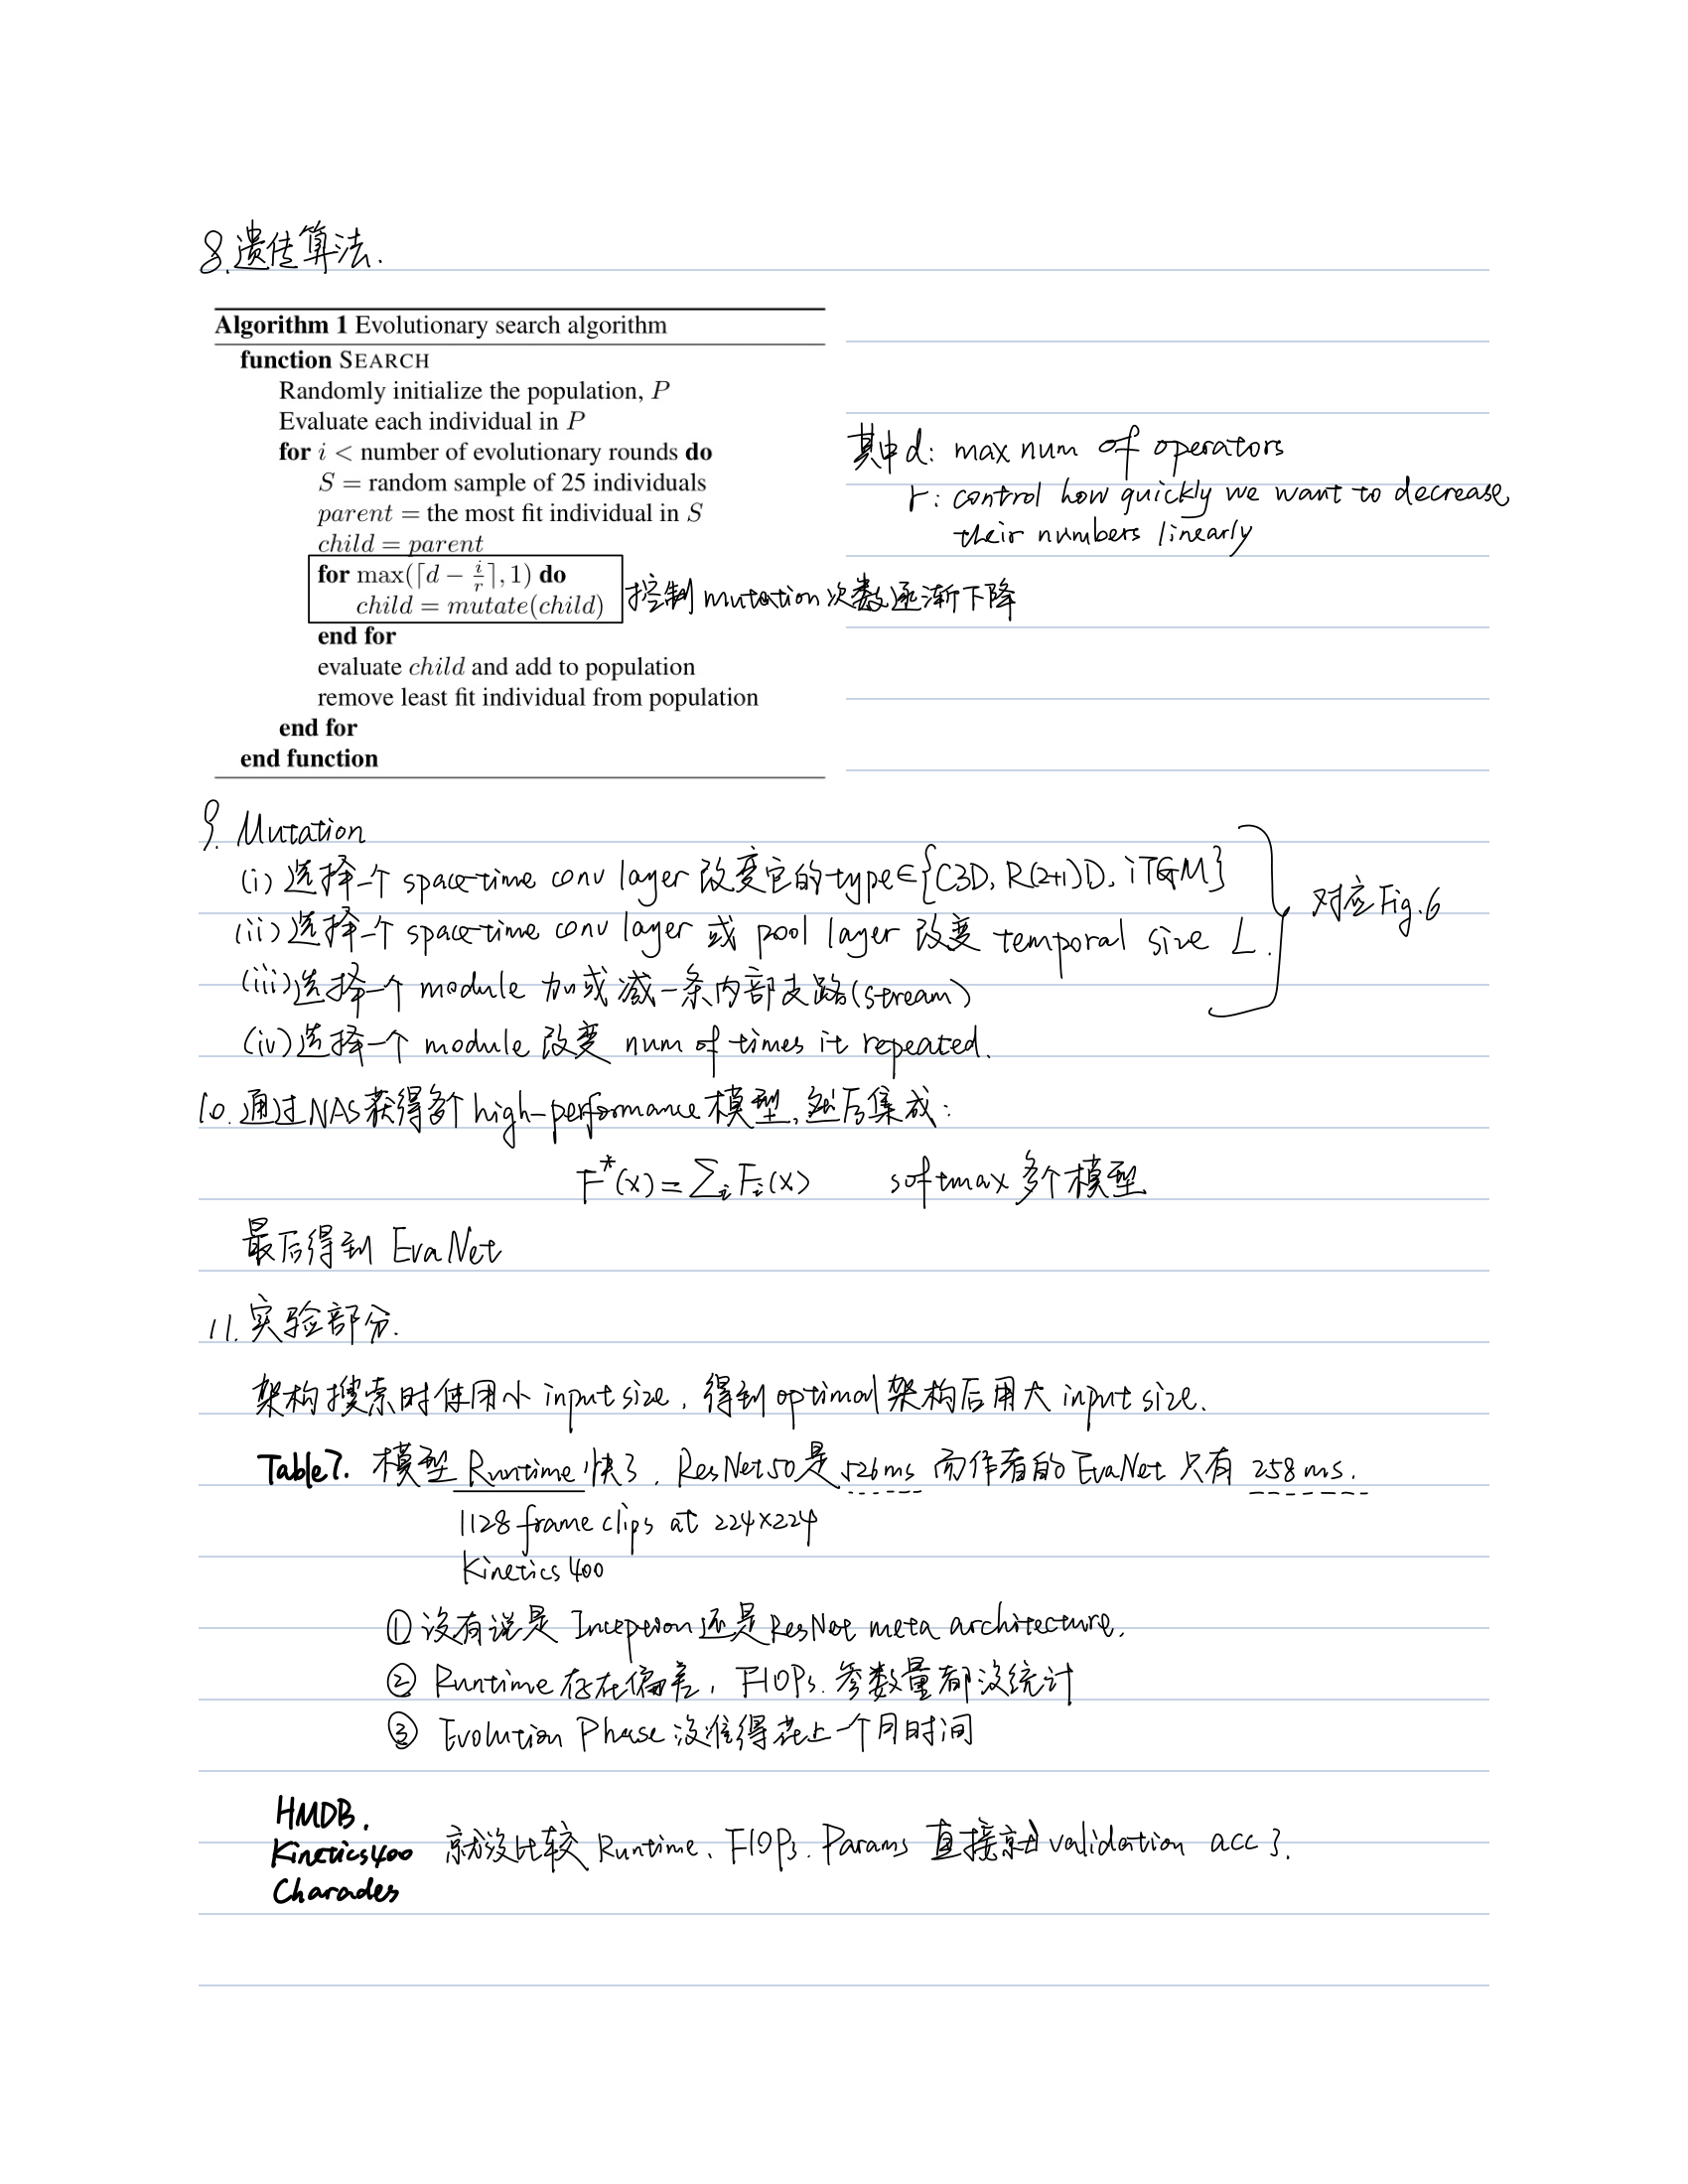 8.遗传算法.
Algorithm 1 Evolutionary search algorithm
function SEARCH
Randomly initialize the population, P
Evaluate each individual in P
for i < number of evolutionary rounds do
S = random sample of 25 individuals
parent = the most fit individual in S
child = parent
for max(⌈d − i/r⌉, 1) do
child = mutate(child)
end for
evaluate child and add to population
remove least fit individual from population
end for
end function
其中d: max num of operators
r: control how quickly we want to decrease
their numbers linearly
控制mutation次数逐渐下降
9. Mutation
(i) 选择一个 space-time conv layer 改变它的type∈{C3D, R(2+1)D, iTGM}
(ii) 选择一个 space-time conv layer 或 pool layer 改变 temporal size L.
(iii)选择一个 module 加或减一条内部支路(stream)
(iv)选择一个 module 改变 num of times it repeated.
对应Fig.6
10. 通过NAS获得多个high-performance模型,然后集成:
F*(x)=∑ᵢFᵢ(x) softmax 多个模型
最后得到 EvaNet
11. 实验部分.
架构搜索时使用小 input size, 得到optimal架构后用大 input size.
Table7. 模型 Runtime 快了, ResNet50是526ms 而作者的 EvaNet 只有 258ms.
1128 frame clips at 224×224
Kinetics400
① 没有说是 Inception还是ResNet meta architecture.
② Runtime存在偏差, FlOPs.参数量都没统计
③ Evolution Phase 没准得花上一个月时间
HMDB.
Kinetics400 就没比较 Runtime、FlOPs.Params 直接就 validation acc了.
Charades